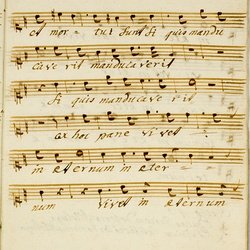 et mor - tui sunt Si quis mandu
cave rit manducaverit
Si quis manducave rit
ex hoc pane vivet
in eternum in eter -
num vivet in eternum